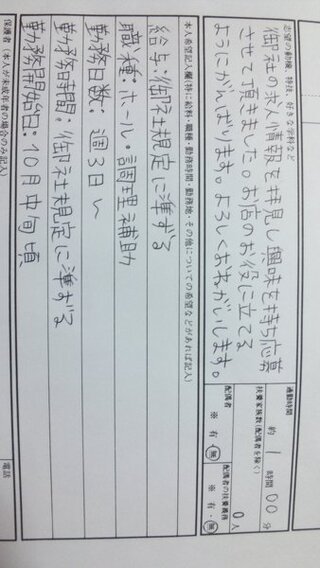 志望の動機、特技、好きな学科など
御社の求人情報を拝見し興味を持ち応募
させて頂きました。お店のお役に立てる
ようにがんばります。よろしくおねがいします。
通勤時間
約 1 時間 00 分
扶養家族数(配偶者を除く)
0 人
配偶者
※ 有・無
配偶者の扶養義務
※ 有・無
本人希望記入欄(特に給料・職種・勤務時間・勤務地・その他についての希望などがあれば記入)
給与:御社規定に準ずる
職種:ホール・調理補助
勤務日数:週3日~
勤務時間:御社規定に準ずる
勤務開始日:10月中旬頃
保護者(本人が未成年者の場合のみ記入)
電話